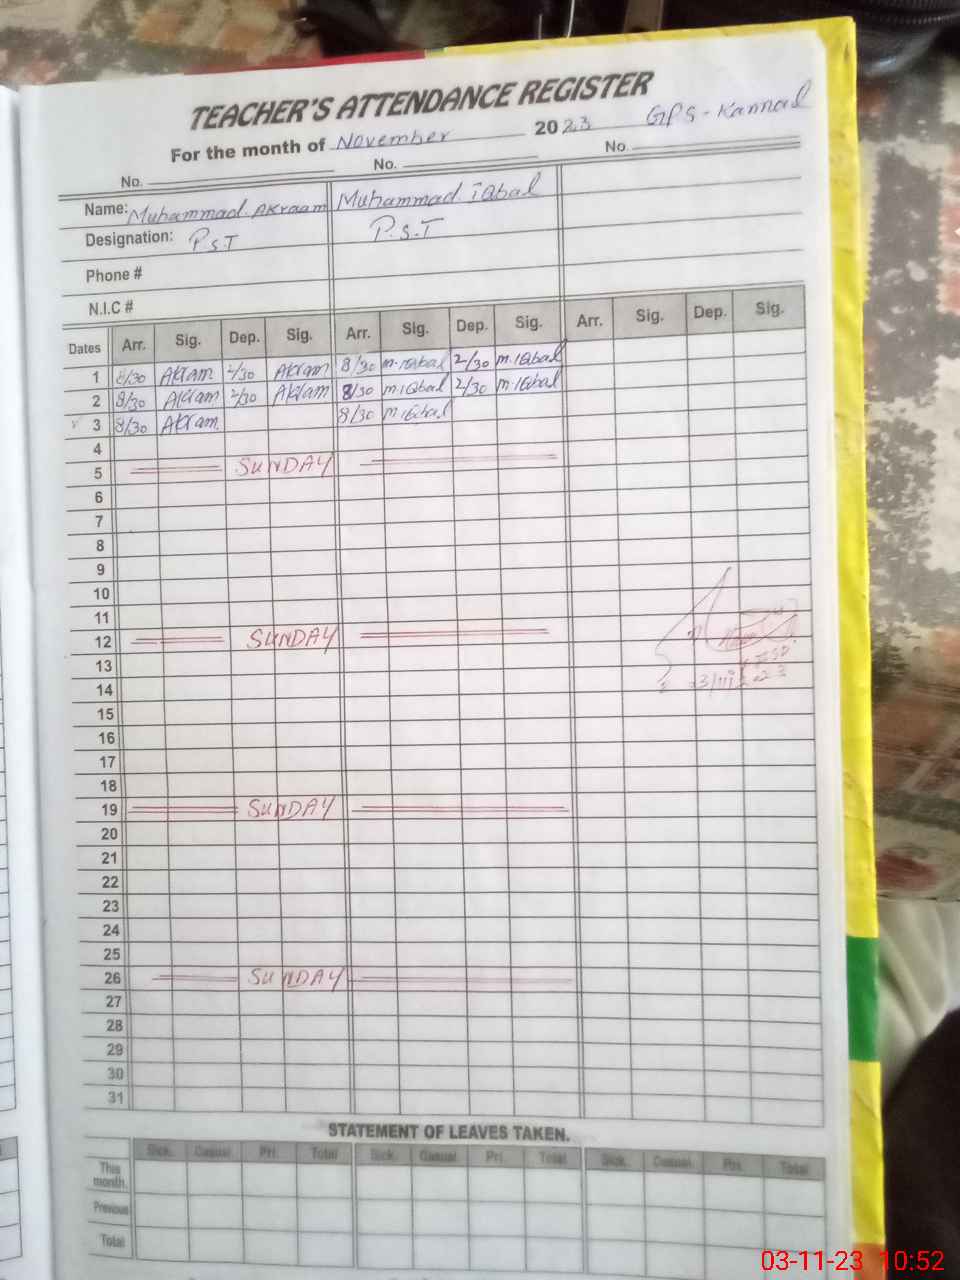 TEACHER'S ATTENDANCE REGISTER
For the month of November 2023 GPS-Kannad
No. No. No.
Name: Muhammad Akraam Muhammad iqbal
Designation: P.S.T P.S.T
Phone #
N.I.C #
Dates Arr. Sig. Dep. Sig. Arr. Sig. Dep. Sig. Arr. Sig. Dep. Sig.
1 8/30 Akram 2/30 Akram 8/30 M.iqbal 2/30 M.iqbal
2 8/30 Akram 2/30 Akram 8/30 M.iqbal 2/30 M.iqbal
3 8/30 Akram 8/30 M.iqbal
4
5 SUNDAY
6
7
8
9
10
11
12 SUNDAY
13
14
15
16
17
18
19 SUNDAY
20
21
22
23
24
25
26 SUNDAY
27
28
29
30
31
STATEMENT OF LEAVES TAKEN.
Sick. Casual. Pri. Total Sick. Casual. Pri. Total Sick. Casual. Pri. Total
This month.
Previous
Total
03-11-23 10:52